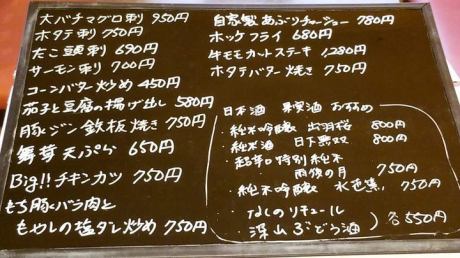 大バチマグロ刺 950円
ホタテ刺 750円
たこ頭刺 690円
サーモン刺 700円
コーンバター炒め 450円
茄子と豆腐の揚げ出し 580円
豚レジン 鉄板焼き 750円
舞茸天ぷら 650円
Big!! チキンカツ 750円
もち豚バラ肉と
もやしの塩ダレ炒め 750円
自家製 あぶりチャーシュー 780円
ホッケフライ 680円
牛モモカットステーキ 1280円
ホタテバター焼き 750円
日本酒 果実酒 おすすめ
・純米吟醸 出羽桜 800円
・純米酒 日下無双 800円
・超辛口特別純米
雨後の月 750円
・純米吟醸 水芭蕉 750円
・なしのリキュール
・深山ぶどう酒 各550円